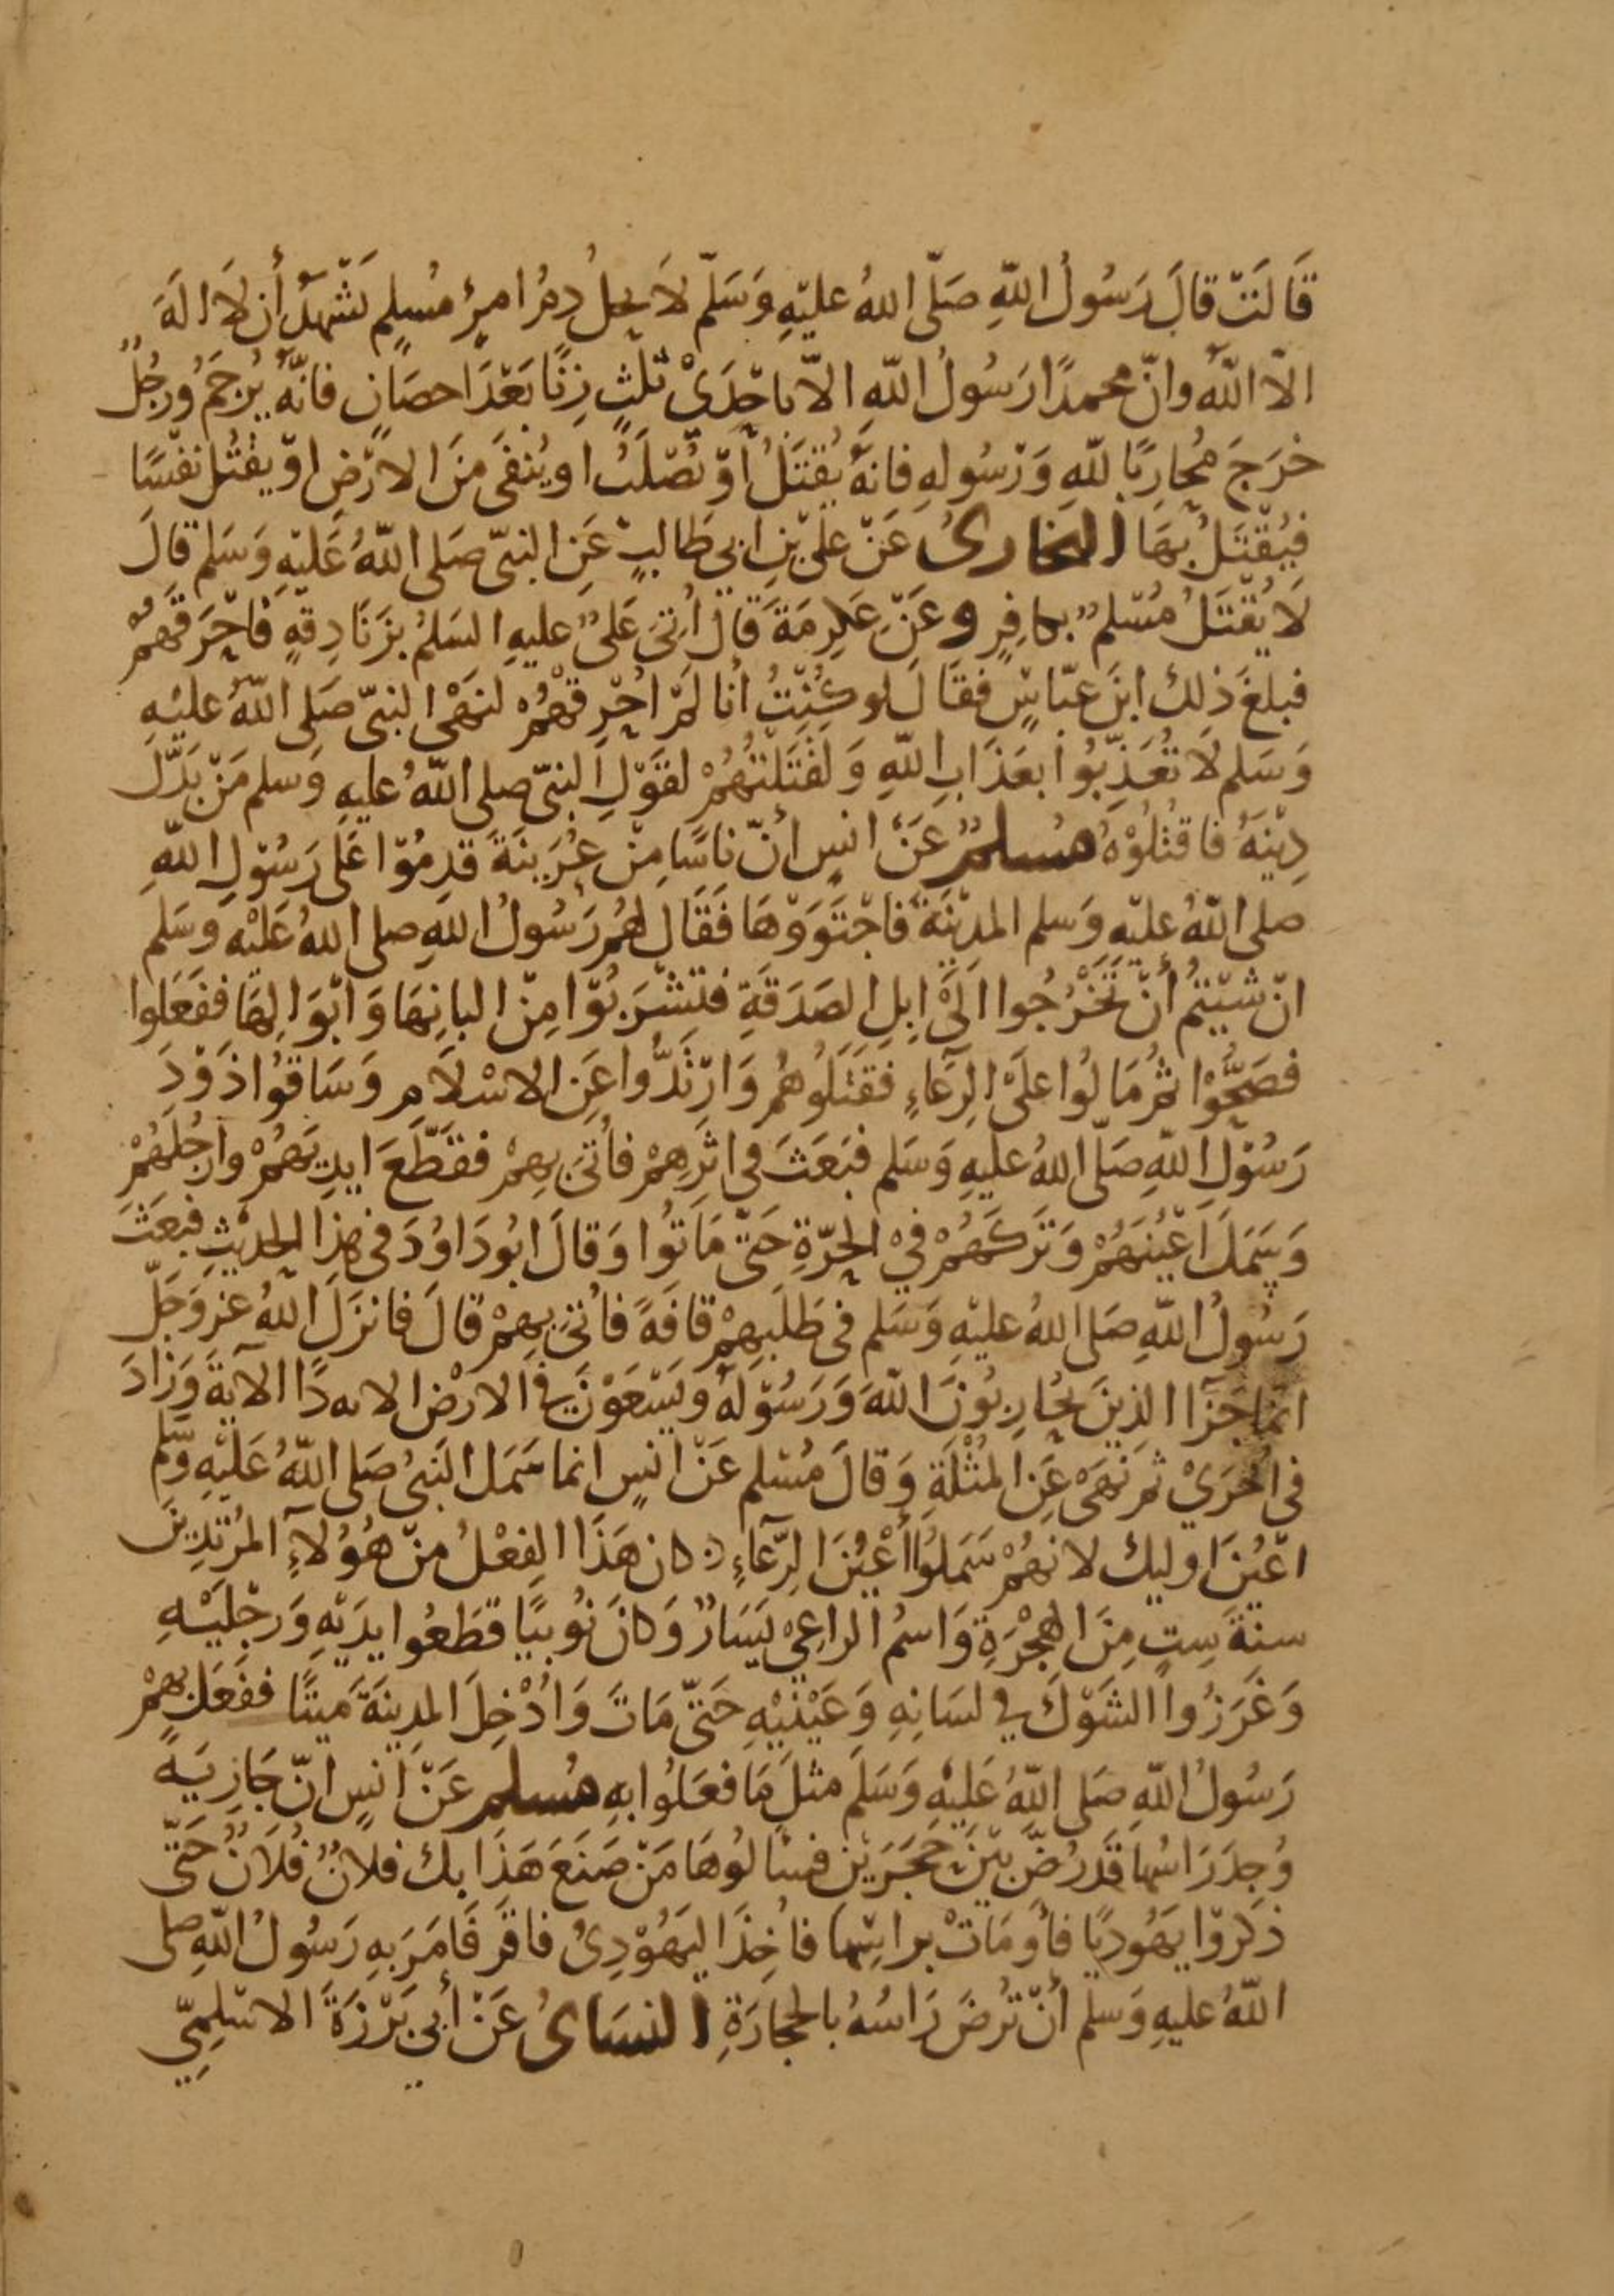 قَالَتْ قالَ رَسُولُ اللّهِ صَلّى اللهُ عليْهِ وَسَلّم لاَ يحلُ دمُ امرِئٍ مُسلِمٍ تَشْهَدُ أن لاَ الهَ
الّا اللّهُ وانّ محمدًا رَسُولُ اللّهِ الاّ باحْدَىْ ثلثٍ زنًا بَعْدَ احصَانٍ فانّهُ يُرجَمُ ورجُلٌ
خرَجَ مُحارِبًا للّهِ وَرْسُولهِ فانهُ يُقْتَلُ أوْ يُصْلَبُ او يُنفَى منَ الارْضِ اوْ يقتُل نفسًا
فيُقْتَلُ بهَا البخارىُ عَنْ علىّ بْنِ ابي طَالبٍ عَنِ النبىّ صَلى اللّهُ عَليْهِ وَسَلم قالَ
لاَ يُقْتَلُ مُسْلمٌ بكافِرٍ وعَنْ عَكرِمَةَ قالَ أُتىَ عَلىٌ عليهِ السَلمُ بزَنَادِقةٍ فَاحْرَقَهُمْ
فبلغَ ذلك ابنَ عبّاسٍ فقَالَ لو كُنْتُ أنا لَمْ احْرِقْهُمْ لنهْىِ النبىّ صَلى اللّهُ عليْهِ
وَسَلم لَا تُعَذِّبُوا بعَذَابِ اللّهِ وَلقَتَلْتُهُمْ لقَوْلِ النبىّ صلى اللّهُ عليهِ وَسلم مَنْ بَدّلَ
دِيْنَهُ فاقتُلُوْهُ مُسلمٌ عَنْ انسٍ أنّ ناسًا مِنْ عُرَينَةَ قدِمُوْا عَلى رَسُوْلِ اللّهِ
صلى اللّهُ عليْهِ وَسلم المدِيْنَةَ فاجْتَوَوْهَا فَقَالَ لهُمْ رَسُولُ اللّهِ صلى اللهُ عَليْهِ وسَلم
انْ شيْتمُ أنْ تَخْرُجُوا الَىْ ابِلِ الصَدَقَةِ فتشْرَبُوْا مِنْ البانِهَا وَابْوَالِهَا ففَعَلوا
فصَحُّوْا ثمْ مَالُوا علَى الرِعَاءِ فقَتَلوهُمْ وَارْتَدُّوا عَنِ الاسْلاَمِ وَسَاقُوا ذَوْدَ
رَسُوْلِ اللّهِ صَلّى اللهُ عليْهِ وَسَلم فبَعَثَ فى اثَرِهِمْ فأُتىَ بِهِمْ ففَطّعَ ايدِيَهُمْ وارْجُلَهُمْ
وَسَمَلَ اعْيُنَهُمْ وَتَرَكَهُمْ فيْ الحَرّةِ حَتّى مَاتُوا وَقالَ ابُو دَاوُدَ فى هذا الحدِيْثِ فبَعَثَ
رَسُولُ اللّهِ صَلى اللهُ عليْهِ وَسَلم فى طَلَبِهِمْ قافَةً فأُتىَ بِهِمْ قالَ فانزَلَ اللهُ عزَّ وَجَلّ
انمَا جَزَآا الذِينَ يُحَارِبُونَ اللّهَ وَرَسُوْلَهُ وَيَسْعَوْنَ فى الارْضِ الايه دًا الآيةَ وَزَادَ
فى اُخرَىْ ثمَ نَهَى عَنِ المثْلَةِ وَقالَ مُسْلم عَنْ انسٍ انما سَمَل النَبىُ صَلى اللّهُ عَليْهِ وَسَلم
اعْيُنَ اوليك لانهُمْ سَمَلُوا أعْيُنَ الرِّعَآءِ وكانَ هَذَا الفِعْلُ مِنْ هَؤُلآءِ المُرْتَدِيْنَ
سنةَ سِتٍ مِنَ الهجْرَةِ وَاسمُ الراعِىْ يَسَارٌ وَكانَ نُوبيًا قطَعُوا يدَيْهِ وَرجْليْهِ
وَغَرَزُوا الشَوْكَ في لسَانِهِ وَعَيْنيْهِ حَتّى مَاتَ وَادُخِلَ المدِينَةَ مَيتًا ففَعَل بِهِمْ
رَسُولُ اللّهِ صَلى اللّهُ عَليْهِ وَسَلَم مثلَ مَا فعَلُوا بهِ مُسلم عَنْ انسٍ انّ جَارِيَةً
وُجِدَ رَاسُها قَد رُضَّ بَيْنَ حَجَرَيْن فسَالُوهَا مَنْ صَنَعَ هَذَا بك فلانٌ فُلاَنٌ حَتّى
ذكَرُوْا يَهُوديًا فأَومَاتْ براسِهَا فأُخِذَ اليَهُوْدِىُ فاقرَّ فَامَرَ بهِ رَسُولُ اللّهِ صلى
اللّهُ عليهِ وَسَلم أنْ تُرضَ رَاسُهُ بالحجَارَةِ النسَاىُ عَنْ أبي بَرْزَةَ الاسْلمِيّ